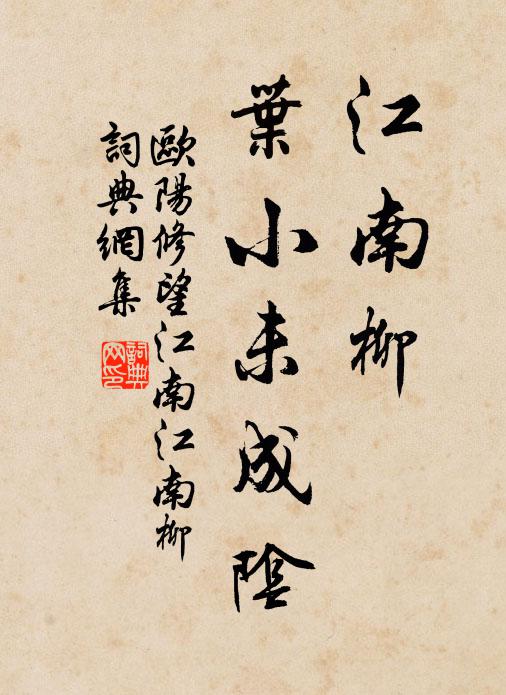 江南柳
葉小未成陰
歐陽修望江南江南柳
詞典網集
詞典網印